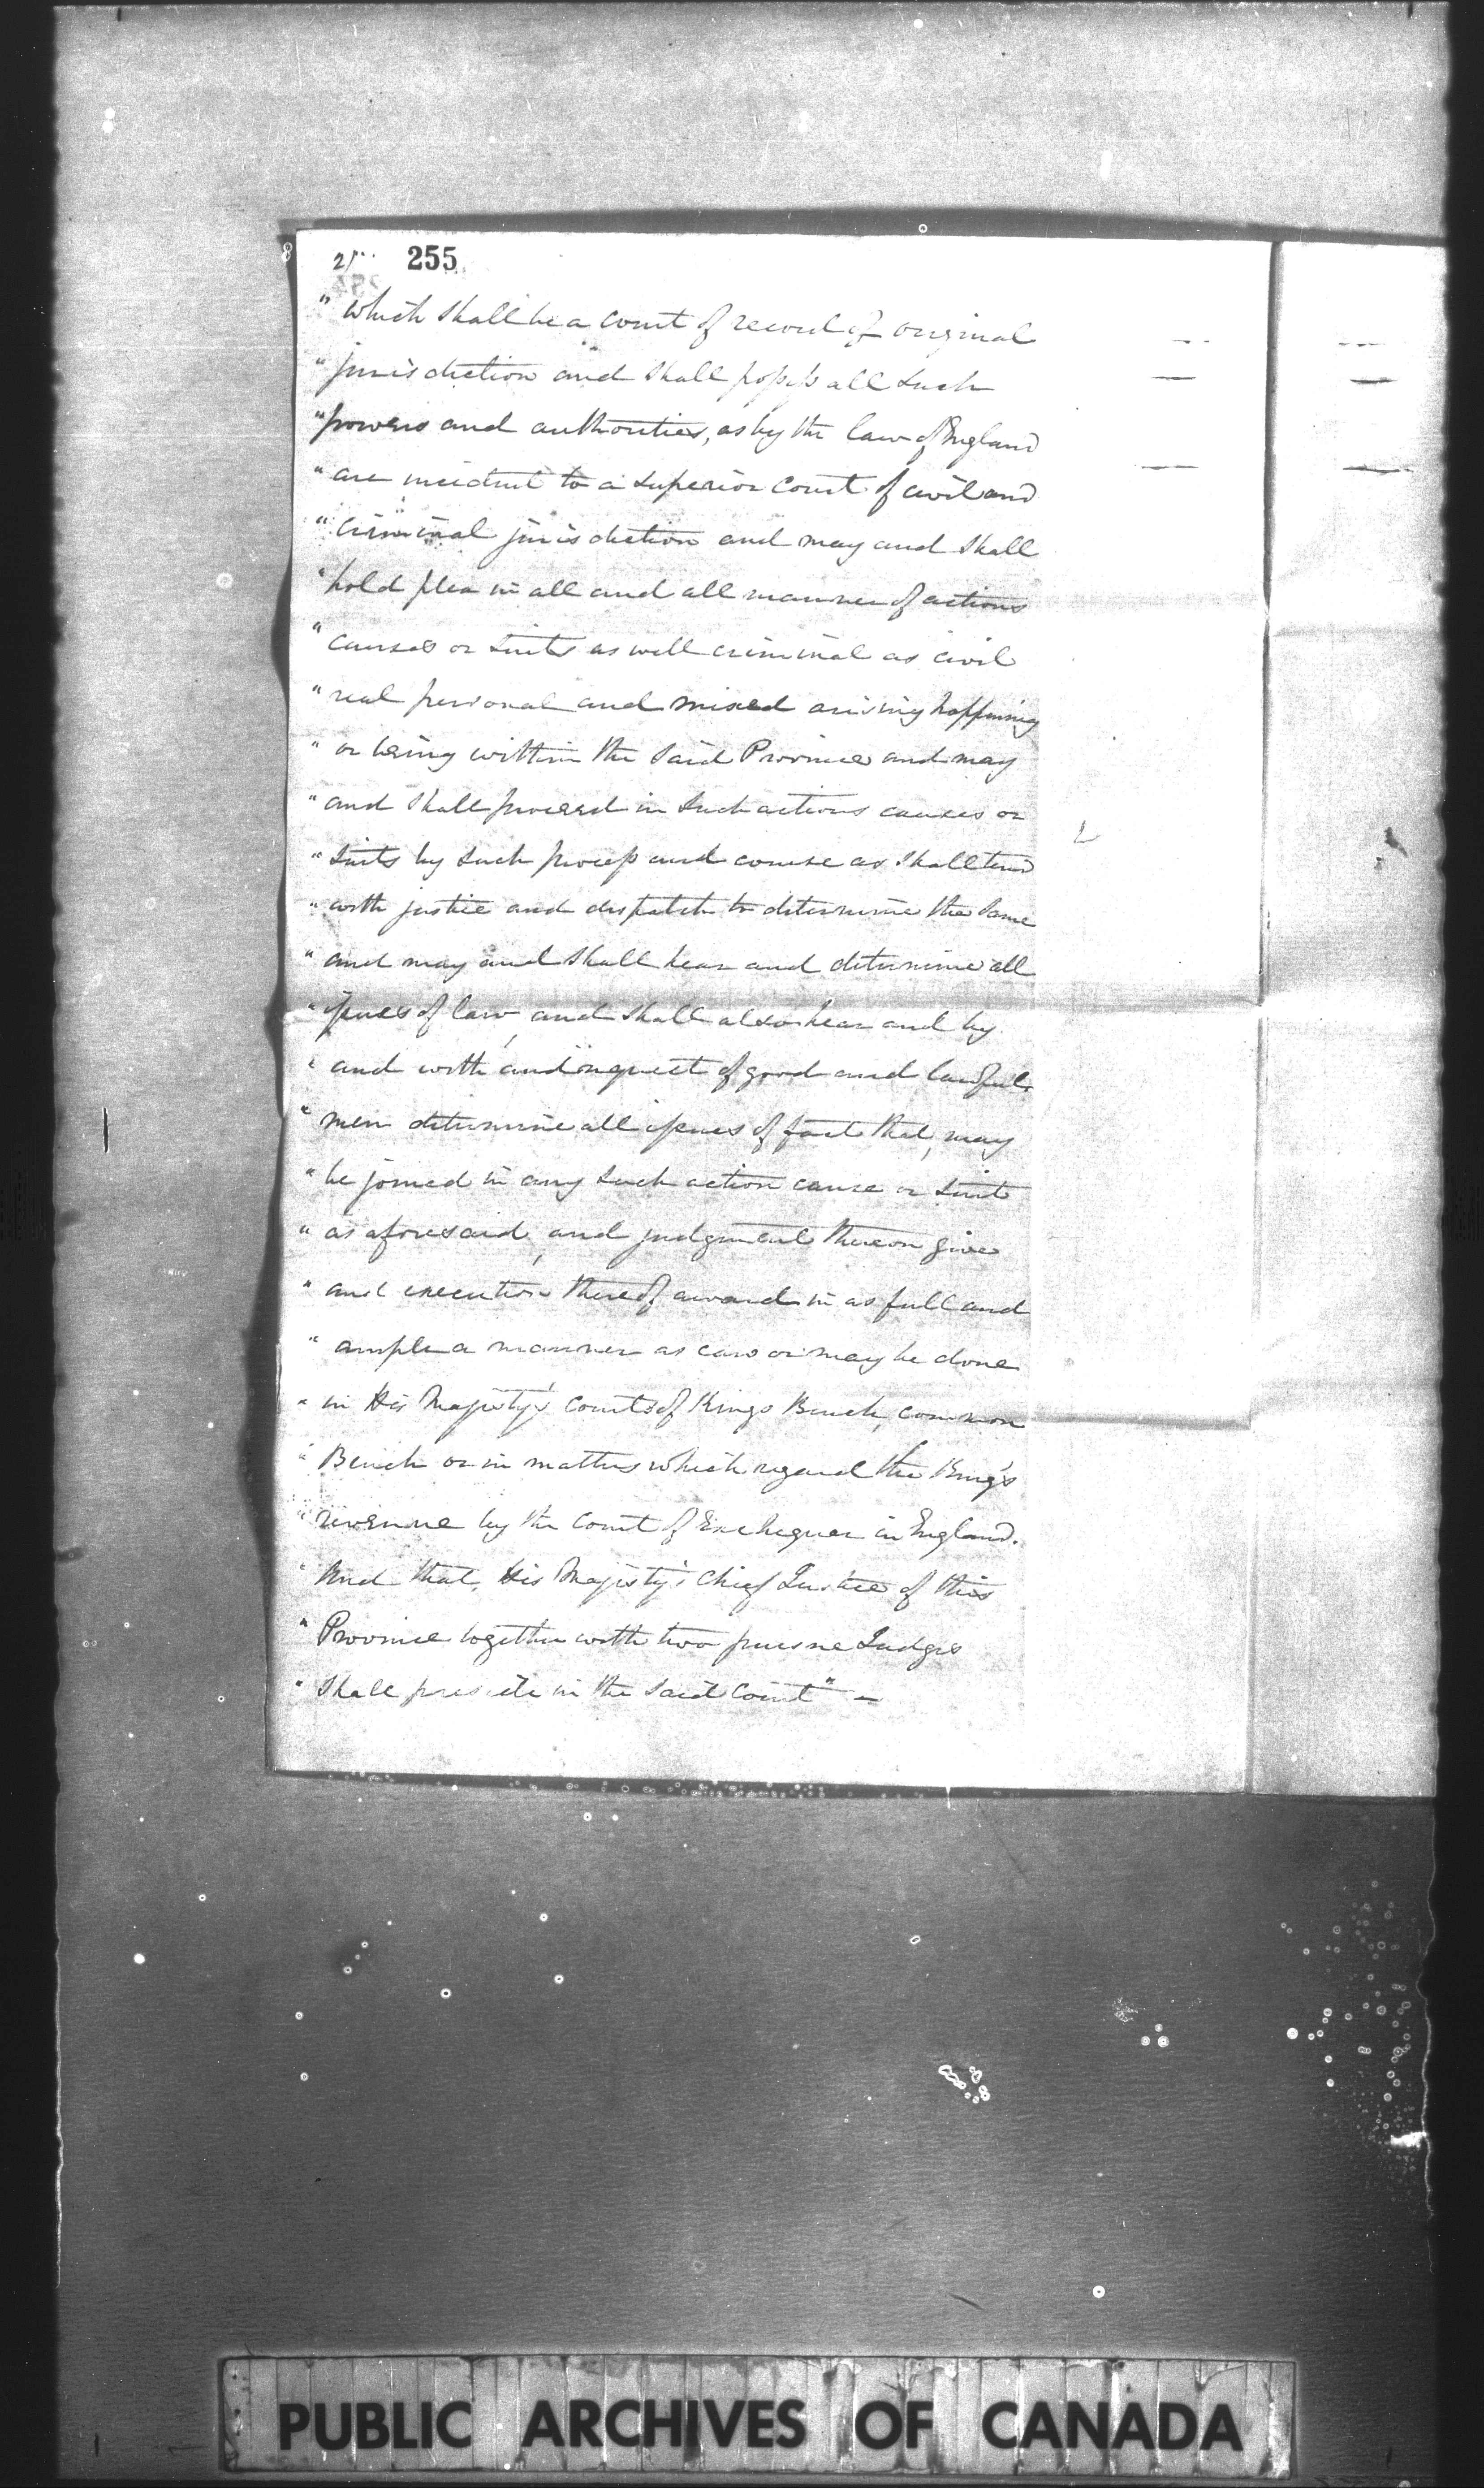 255
" which shall be a court of record of original
" jurisdiction and shall possess all such
" powers and authorities, as by the law of England
" are incident to a superior court of civil and
" criminal jurisdiction and may and shall
" hold plea in all and all manner of actions
" causes or suits as well criminal as civil
" real personal and mixed arising happening
" or being within the said Province and may
" and shall proceed in such actions causes or
" suits by such process and course as shall tend
" with justice and dispatch to determine the same
" and may and shall hear and determine all
" issues of law, and shall also hear and by
" and with an inquest of good and lawful
" men determine all issues of fact that may
" be joined in any such action cause or suit
" as aforesaid, and judgment thereon give
" and execution thereof award in as full and
" ample a manner as can or may be done
" in His Majesty's Courts of Kings Bench, common
" Bench or in matters which regard the King's
" revenue by the Court of Exchequer in England.
" And that, His Majesty's Chief Justice of this
" Province together with two puisne Judges
" shall preside in the said Court" —
PUBLIC ARCHIVES OF CANADA